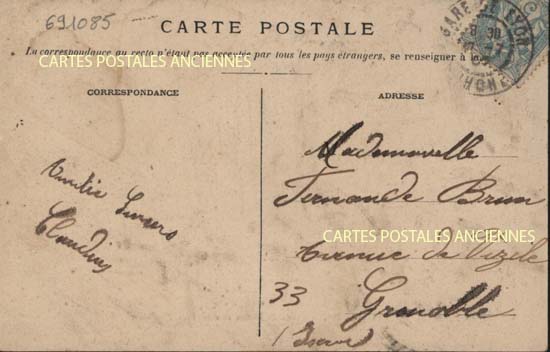 691085
CARTE POSTALE
La correspondance au recto n'étant pas acceptée par tous les pays étrangers, se renseigner à la
CARTES POSTALES ANCIENNES
GARE DE LYON
RHONE
CORRESPONDANCE
ADRESSE
Mademoiselle
Fernande Brun
CARTES POSTALES ANCIENNES
Avenue de Vizille
33
Grenoble
Isère
Amitié
Claudius